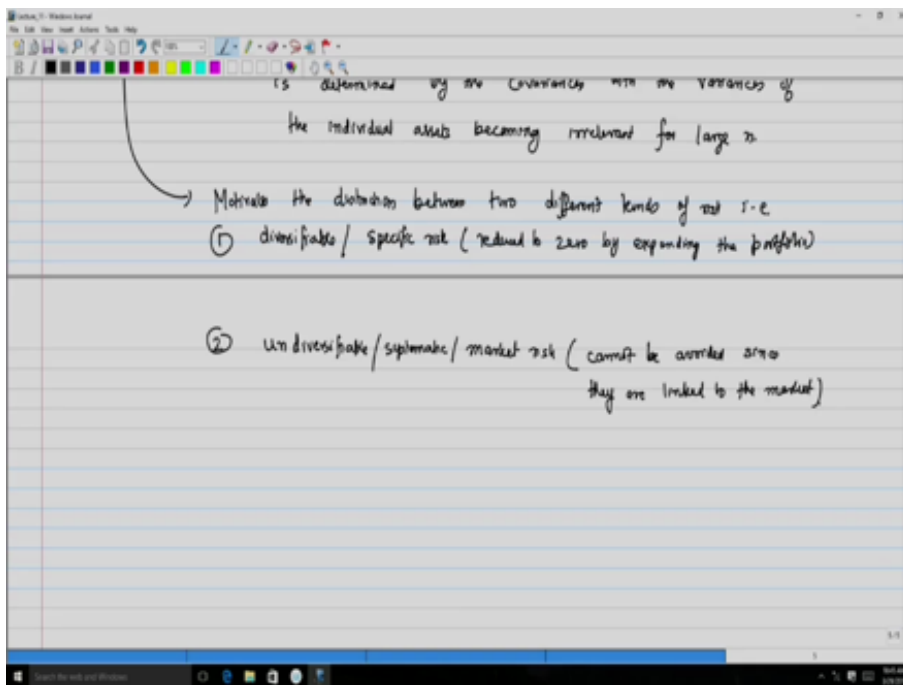 Lecture_11 - Windows Journal
File Edit View Insert Actions Tools Help
is determined by the covariances with the variances of
the individual assets becoming irrelevant for large n
Motivates the distinction between two different kinds of risk i.e
① diversifiable / specific risk ( reduced to zero by expanding the portfolio)
② undiversifiable / systematic / market risk ( cannot be avoided since
they are linked to the market)
Search the web and Windows